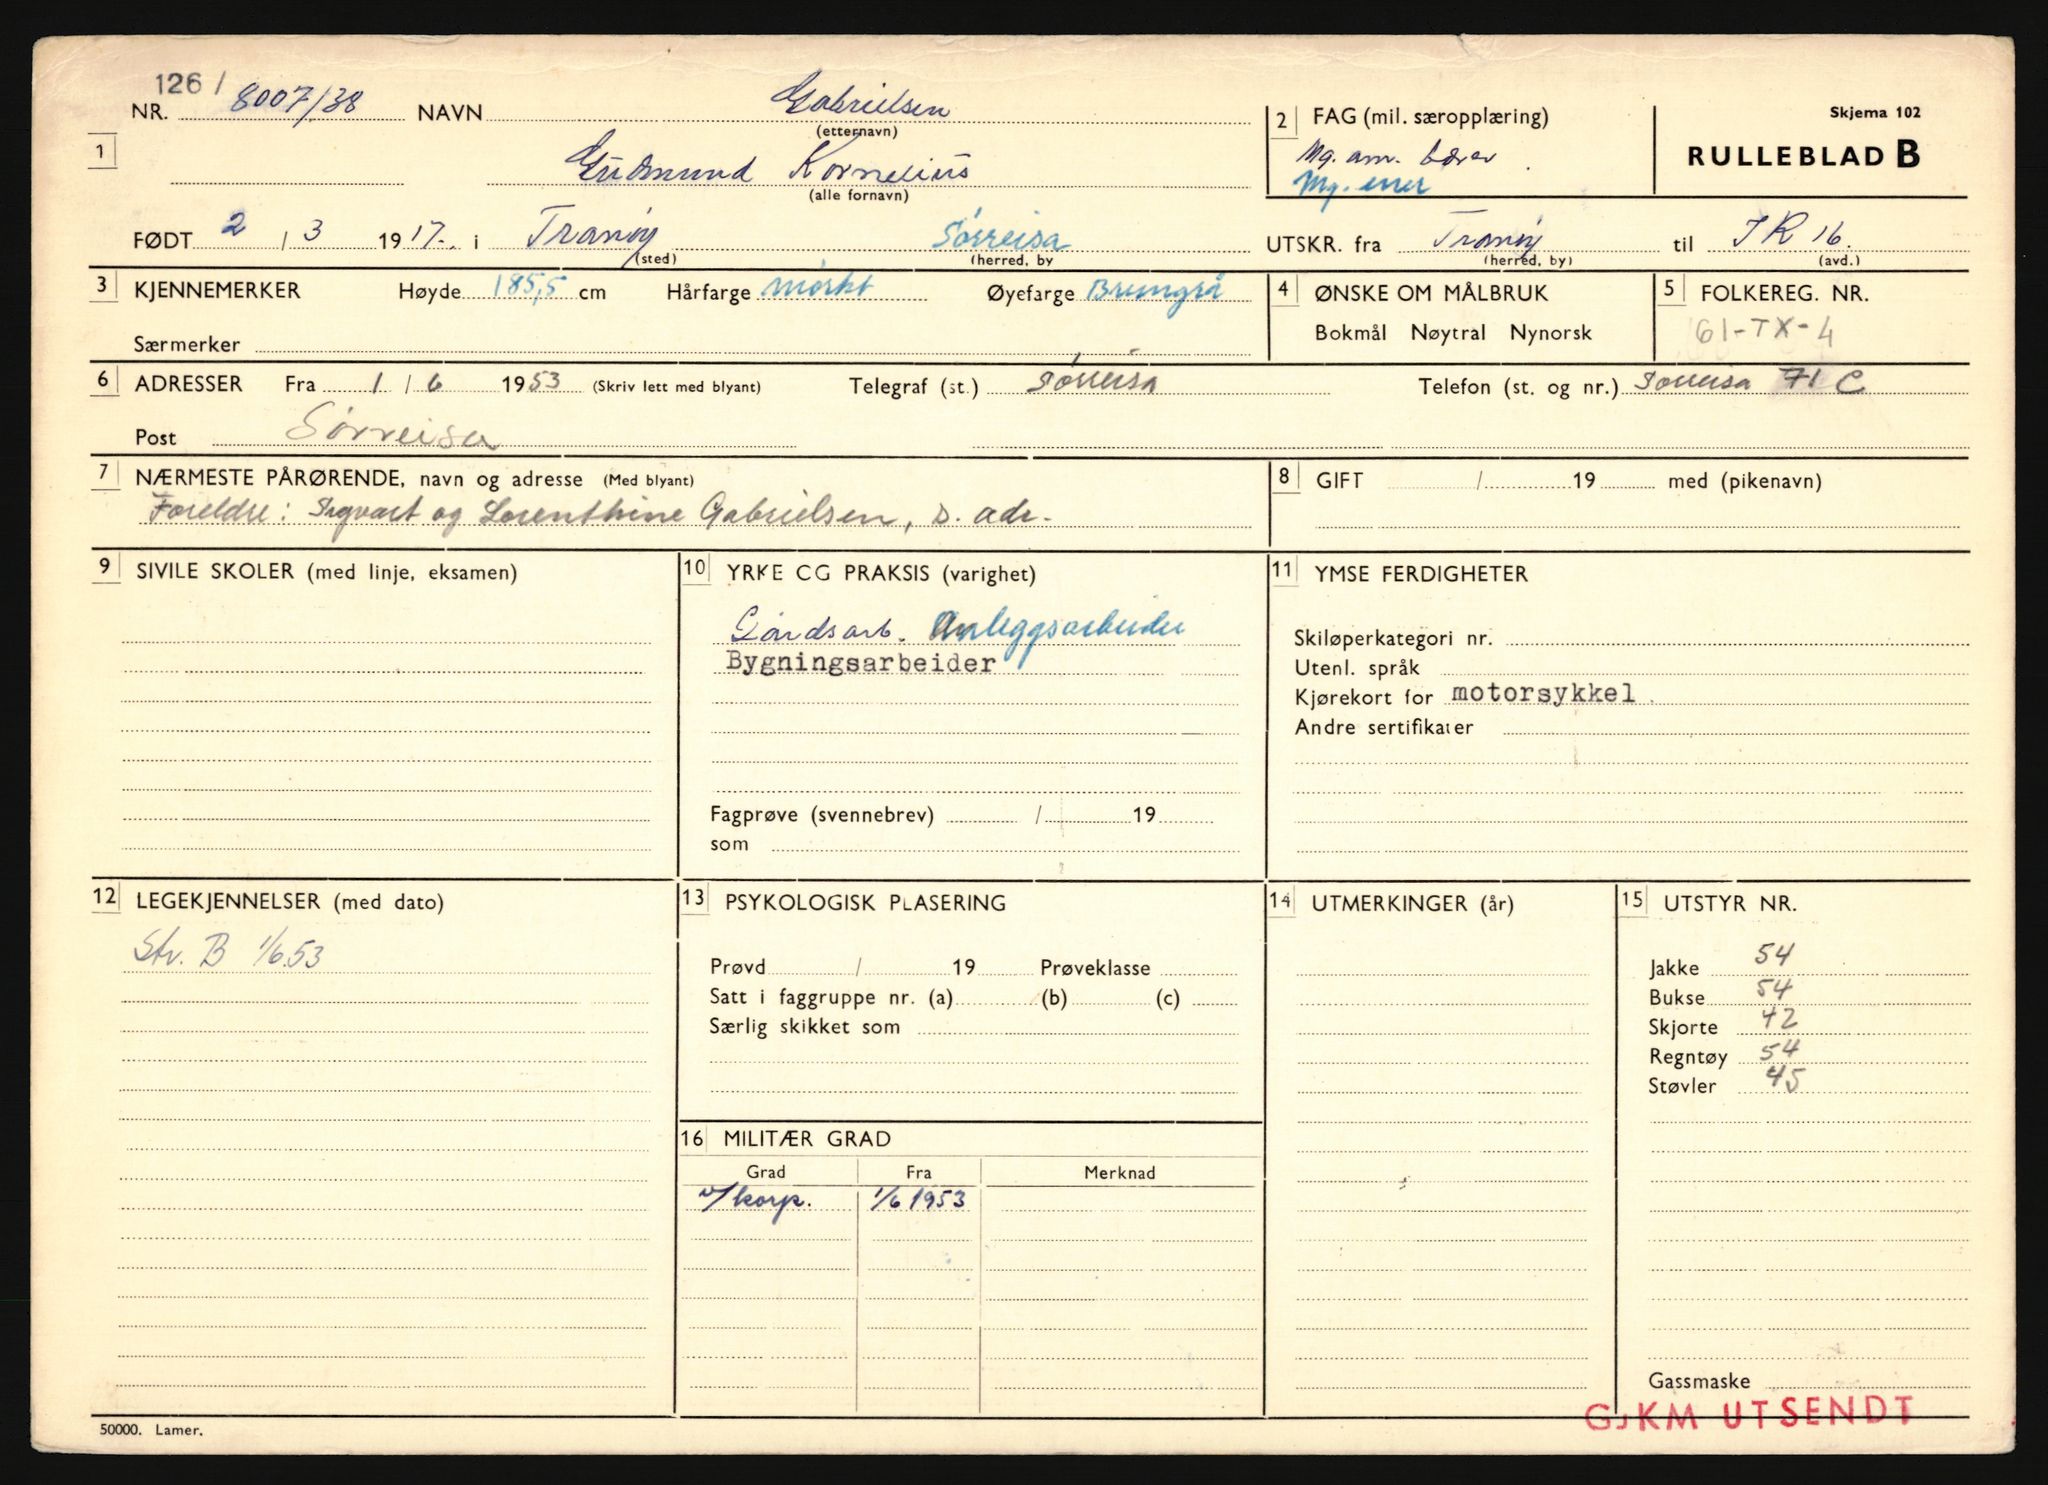 126/
NR. 8007/38 NAVN Gabrielsen
(etternavn)
1
Gudmund Kornelius
(alle fornavn)
2 FAG (mil. særopplæring)
Mg. am. bærer
Mg.
Skjema 102
RULLEBLAD B
FØDT 2 / 3 1917. i Tranøy Sørreisa
(sted) (herred, by
UTSKR. fra Tranøy til IR 16.
(herred, by) (avd.)
3 KJENNEMERKER Høyde 185,5 cm Hårfarge mørkt Øyefarge Brungrå
Særmerker
4 ØNSKE OM MÅLBRUK
Bokmål Nøytral Nynorsk
5 FOLKEREG. NR.
61-TX-4
6 ADRESSER Fra 1 / 6 1953 (Skriv lett med blyant) Telegraf (st.) Sørreisa Telefon (st. og nr.) Sørreisa 71 C
Post Sørreisa
7 NÆRMESTE PÅRØRENDE, navn og adresse (Med blyant)
Foreldre: Ingvart og Lorenthine Gabrielsen, s. adr.
8 GIFT / 19 med (pikenavn)
9 SIVILE SKOLER (med linje, eksamen)
10 YRKE OG PRAKSIS (varighet)
Gårdsarb. Anleggsarbeider
Bygningsarbeider
Fagprøve (svennebrev) / 19
som
11 YMSE FERDIGHETER
Skiløperkategori nr.
Utenl. språk
Kjørekort for motorsykkel.
Andre sertifikater
12 LEGEKJENNELSER (med dato)
Str. B 1/6.53
13 PSYKOLOGISK PLASERING
Prøvd / 19 Prøveklasse
Satt i faggruppe nr. (a) (b) (c)
Særlig skikket som
14 UTMERKINGER (år)
15 UTSTYR NR.
Jakke 54
Bukse 54
Skjorte 42
Regntøy 54
Støvler 45
Gassmaske
16 MILITÆR GRAD
Grad Fra Merknad
v/korp. 1/6 1953
GJKM UTSENDT
50000. Lamer.